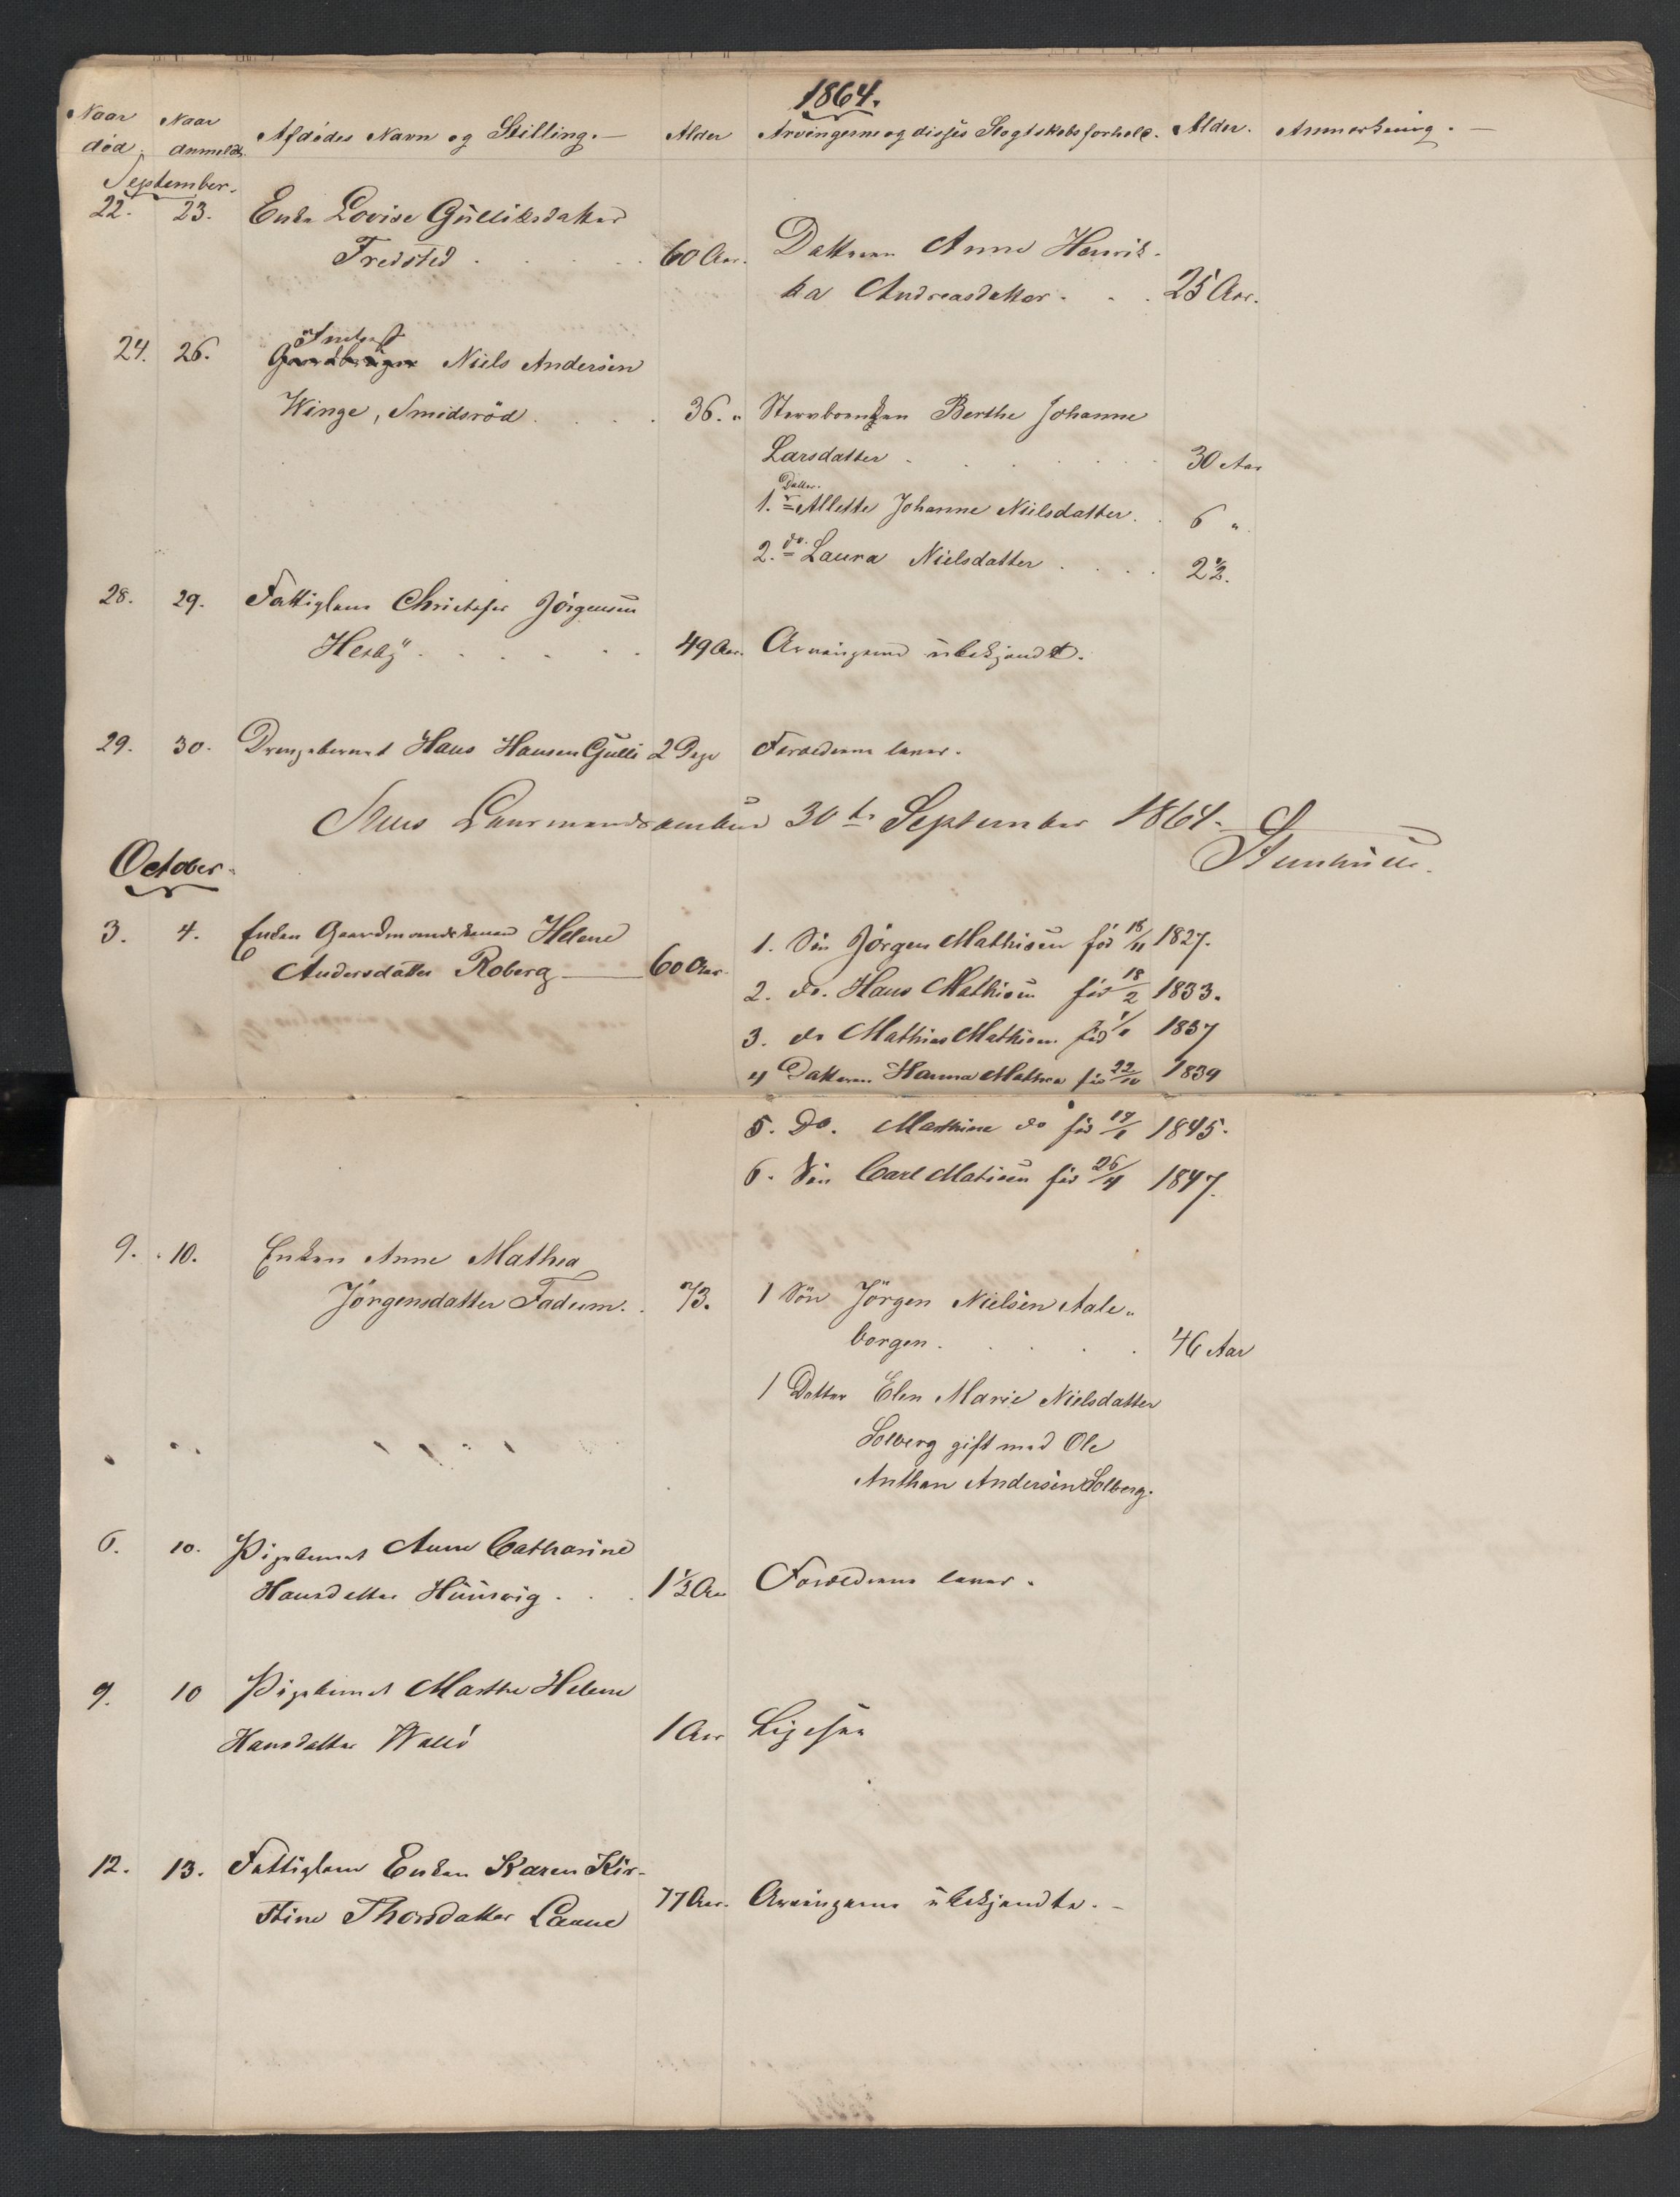 1864.
Naar død. Naar anmeldt. Afdødes Navn og Stilling. — Alder Arvingerne og disses Slegtskabsforhold. Alder. Anmerkning. —
September.
22. 23. Enke Lovise Gulliksdatter
Fredsted . . . . 60 Aar. Datteren Anne Henrik-
ka Andreasdatter . . . 25 Aar.
24. 26. Niels Andersen
Winge, Smidsröd . . . . 36. " Berthe Johanne
Larsdatter . . . . . 30 Aar
1. Datter Allette Johanne Nielsdatter . . 6 "
2. do. Laura Nielsdatter . . . . 2½.
28. 29. Fattiglem Christofer Jörgensen
Hesby . . . . . . 49 Aar. Arvingerne ubekjendt.
29. 30. Drengebarnet Hans Hansen Gulli 2 Dage Forældrene lever.
Lensmandsombud 30te September 1864.
October.
3. 4. Enken Gaardmandskonen Helene
Andersdatter Roberg — 60 Aar.
1. Sön Jörgen Mathisen föd 18/11 1827.
2. do. Hans Mathisen föd 18/2 1833.
3. do Mathias Mathisen föd 1837
4 Datteren Hanna Mathea föd 22/10 1839
5. Do. Mathine do föd 17/1 1845.
6. Sön Carl Matisen föd 26/4 1847.
9. 10. Enken Anne Mathea
Jörgensdatter Fadum. . 73. 1 Sön Jörgen Nielsen Aale-
borgen . . . . . 46 Aar
1 Datter Elen Marie Nielsdatter
Solberg gift med Ole
Anthon Andersen Solberg.
6. 10. Pigebarnet Anne Catharine
Hansdatter Hunsvig . . . 1½ Aar Forældrene lever.
9. 10 Pigebarnet Marthe Helene
Hansdatter Wallö 1 Aar Ligesaa
12. 13. Fattiglem Enken Karen Kir-
stine Thorsdatter Laane 77 Aar. Arvingerne ubekjendte. —